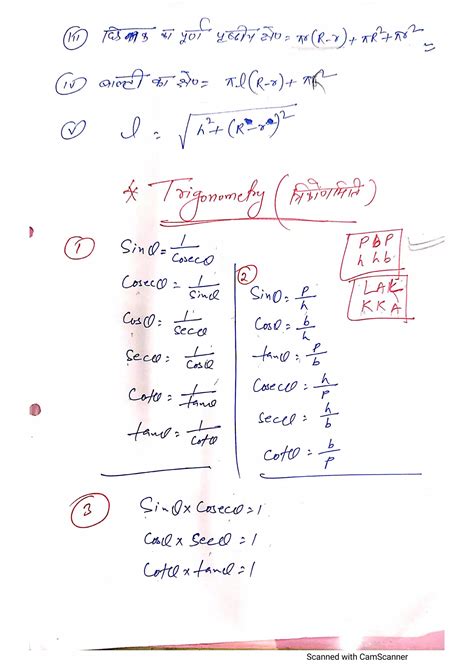 (iii) छिन्नक का पूर्ण पृष्ठीय क्षे० = πr(R-r) + πR² + πr²
(iv) बाल्टी का क्षे० = πl(R-r) + πR²
(v) l = √h² + (R-r)²
* Trigonometry (त्रिकोणमिति)
PBP
hhb
LAK
KKA
(1)
Sinθ = 1/Cosecθ
Cosecθ = 1/Sinθ
Cosθ = 1/Secθ
Secθ = 1/Cosθ
Cotθ = 1/tanθ
tanθ = 1/Cotθ
(2)
Sinθ = p/h
Cosθ = b/h
tanθ = p/b
Cosecθ = h/p
Secθ = h/b
Cotθ = b/p
(3)
Sinθ × Cosecθ = 1
Cosθ × Secθ = 1
Cotθ × tanθ = 1
Scanned with CamScanner